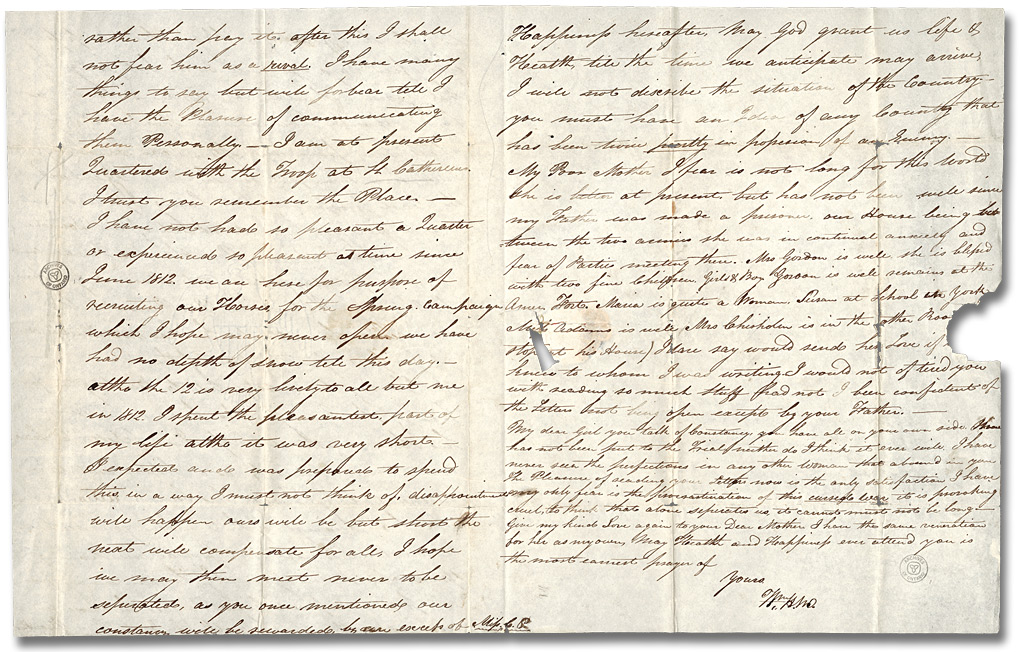 rather than pay it. after this I shall
not fear him as a rival. I have many
things to say but will forbear till I
have the Pleasure of communicating
them Personally. — I am at present
Quartered with the Troop at St Catherines
I trust you remember the Place. —
I have not had so pleasant a Quarter
or experienced so pleasant a time since
June 1812. we are here for purpose of
recruiting our Horses for the Spring Campaign
which I hope may never open. we have
had no depth of snow till this day. —
altho the 12 is very lively to all but me
in 1812. I spent the pleasantest part of
my life altho it was very short —
I expected and was prepared to spend
this in a way I must not think of. disappointments
will happen ours will be but short the
next will compensate for all, I hope
we may then meet never to be
seperated, as you once mentioned our
constancy will be rewarded by an excess of
Happiness hereafter. May God grant us life &
Health till the time we anticipate may arrive,
I will not describe the situation of the Country
you must have an Idea of any Country that
has been twice partly in possession of an Enemy. —
My Poor Mother I fear is not long for this World
She is better at present, but has not been well since
my Father was made a prisoner, our House being be
tween the two armies she was in continual anxiety and
fear of Parties meeting there. Mrs Gordon is well she is blessed
with two fine Children, Girl & Boy Gordon is well remains at the
Maria is quite a Woman, Susan at School at York
Adams is well Mrs Chisholm is in the other Room
at his House) I dare say would send her Love if
knew to whom I was writing I would not of tired you
with reading so much stuff (had not I been confident of
the Letters not being open except by your Father. —
My dear Girl you talk of Constancy you have all on your own side.
has not been put to the Trial neither do I think it ever will, I have
never seen the perfections in any other Woman that abound in you
The Pleasure of reading your letters now is the only satisfaction I have
my only fear is the procrastination of this cursed war it is provoking
cruel to think that alone seperates us, it cannot must not be long
Give my kind Love again to your Dear Mother I have the same veneration
for her as my own, May Health and Happiness ever attend you is
the most earnest prayer of
Yours
Wm H.M.
Miss C. P.